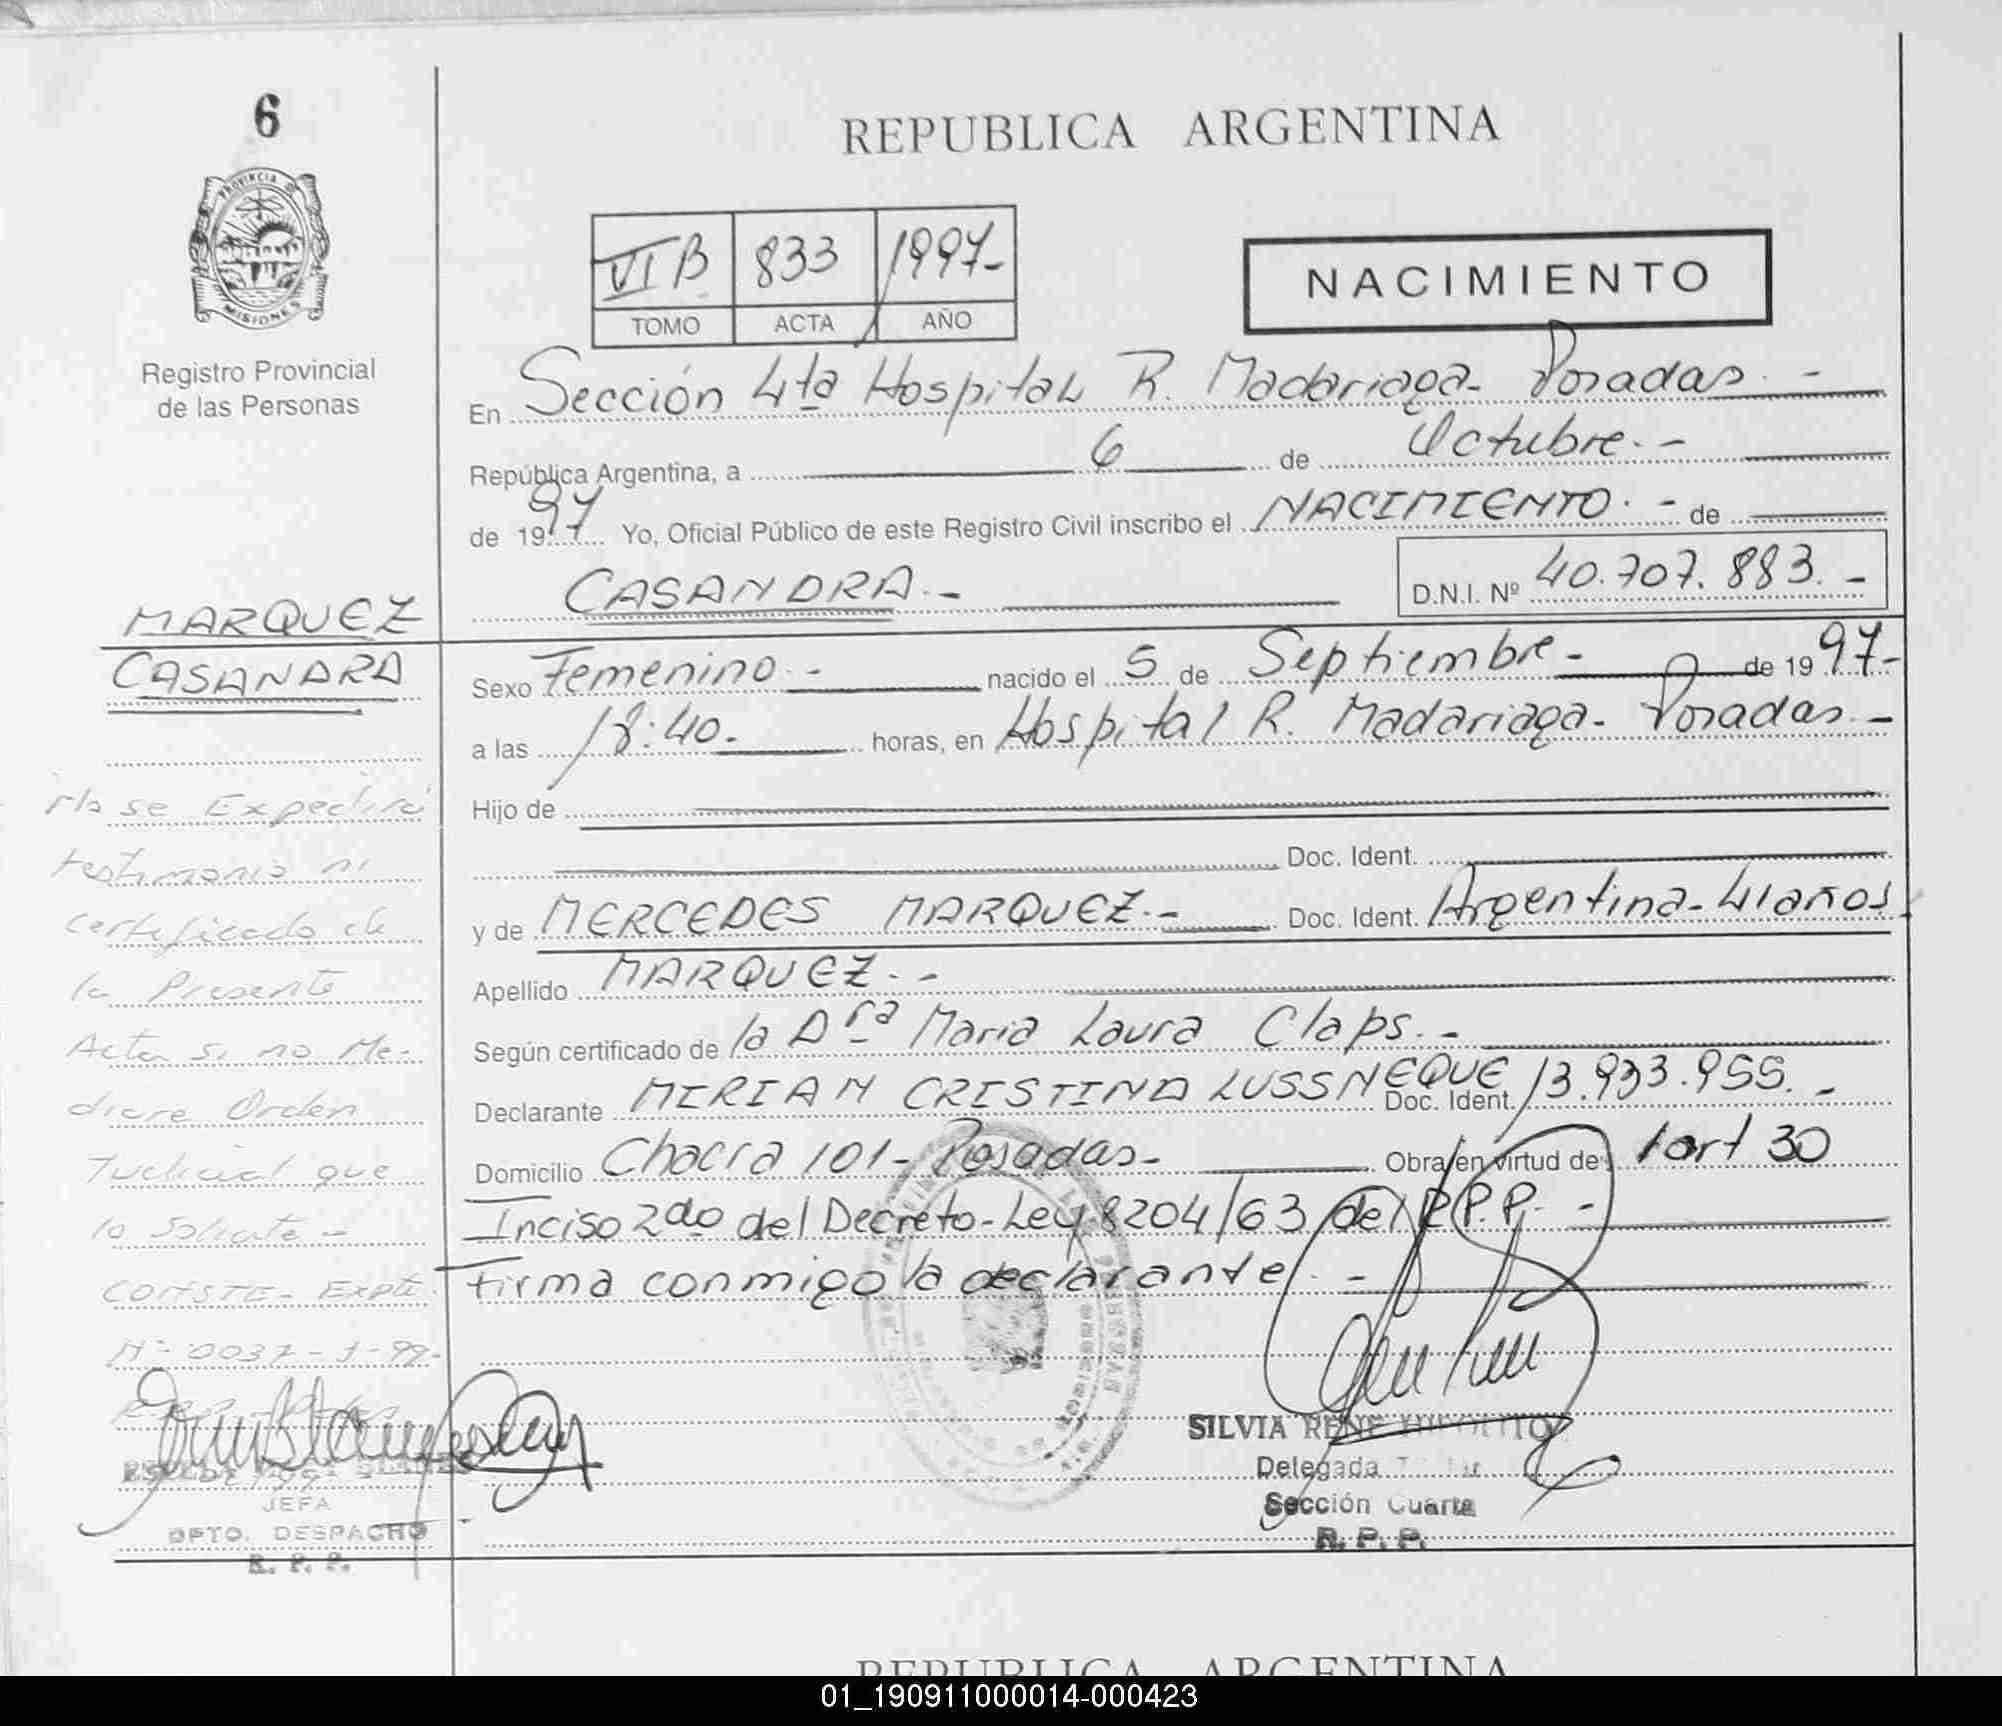 6
PROVINCIA DE
MISIONES
Registro Provincial
de las Personas
REPUBLICA ARGENTINA
VI B 833 1997-
TOMO ACTA AÑO
NACIMIENTO
En Sección 4ta Hospital R. Madariaga- Posadas.-
República Argentina, a 6 de Octubre.-
de 1997 Yo, Oficial Público de este Registro Civil inscribo el NACIMIENTO.- de
CASANDRA.- D.N.I. Nº 40.707.883.-
MARQUEZ
CASANDRA
Sexo Femenino.- nacido el 5 de Septiembre- de 1997-
a las 18:40.- horas, en Hospital R. Madariaga- Posadas.-
Hijo de
Doc. Ident.
y de MERCEDES MARQUEZ.- Doc. Ident. Argentina-41años.
Apellido MARQUEZ.-
Según certificado de la Dra Maria Laura Claps.-
Declarante MIRIAM CRISTINA LUSSNEQUE Doc. Ident. 13.933.955.-
Domicilio Chacra 101- Posadas- Obra en virtud del art 30
Inciso 2do del Decreto-Ley 8204/63 del R.P.P.-
Firma conmigo la declarante.-
No se Expedirá
testimonio ni
certificado de
la Presente
Acta si no Me-
diare Orden
Judicial que
lo Solicite-
CONSTE- Expte.
Nº 0037-J-99-
JEFA
DPTO. DESPACHO
R. P. P.
SILVIA RENE HIPOLITO
Delegada Titular
Sección Cuarta
R. P. P.
REPUBLICA ARGENTINA
01_190911000014-000423